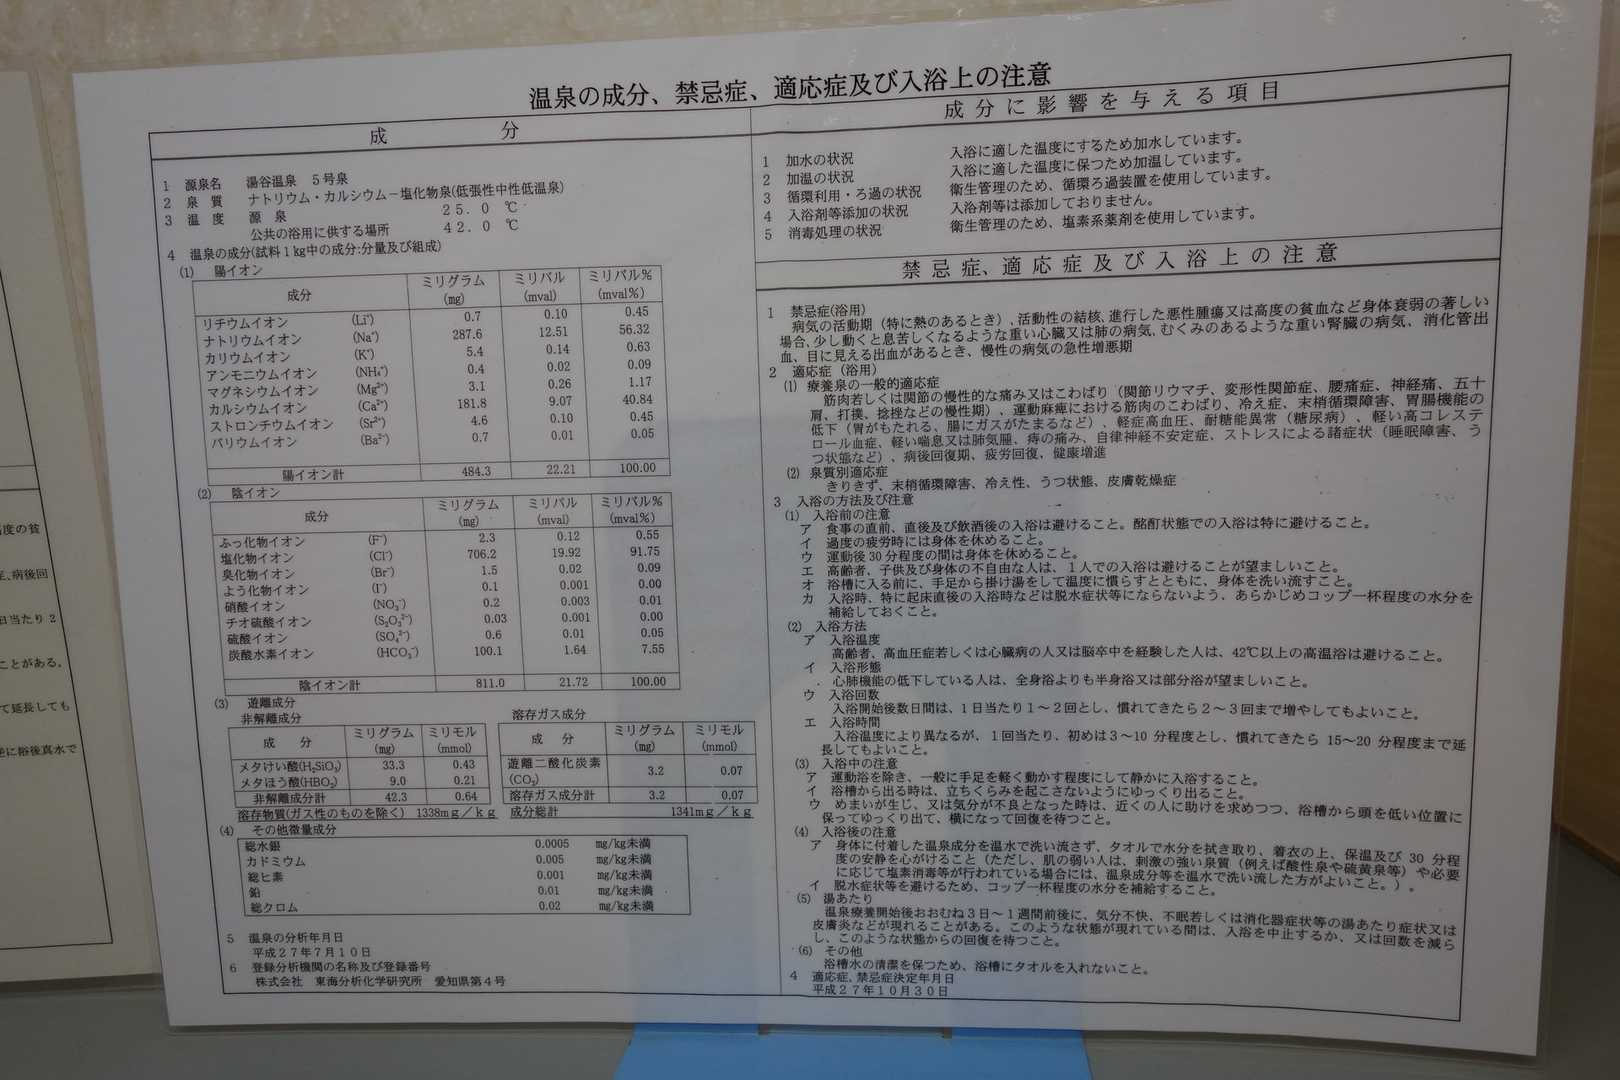 温泉の成分、禁忌症、適応症及び入浴上の注意
成 分
1 源泉名 湯谷温泉 5号泉
2 泉 質 ナトリウム・カルシウム－塩化物泉(低張性中性低温泉)
3 温 度 源 泉 25.0 ℃
公共の浴用に供する場所 42.0 ℃
4 温泉の成分(試料1kg中の成分:分量及び組成)
(1) 陽イオン
成分 ミリグラム(mg) ミリバル(mval) ミリバル%(mval%)
リチウムイオン (Li⁺) 0.7 0.10 0.45
ナトリウムイオン (Na⁺) 287.6 12.51 56.32
カリウムイオン (K⁺) 5.4 0.14 0.63
アンモニウムイオン (NH₄⁺) 0.4 0.02 0.09
マグネシウムイオン (Mg²⁺) 3.1 0.26 1.17
カルシウムイオン (Ca²⁺) 181.8 9.07 40.84
ストロンチウムイオン (Sr²⁺) 4.6 0.10 0.45
バリウムイオン (Ba²⁺) 0.7 0.01 0.05
陽イオン計 484.3 22.21 100.00
(2) 陰イオン
成分 ミリグラム(mg) ミリバル(mval) ミリバル%(mval%)
ふっ化物イオン (F⁻) 2.3 0.12 0.55
塩化物イオン (Cl⁻) 706.2 19.92 91.75
臭化物イオン (Br⁻) 1.5 0.02 0.09
よう化物イオン (I⁻) 0.1 0.001 0.00
硝酸イオン (NO₃⁻) 0.2 0.003 0.01
チオ硫酸イオン (S₂O₃²⁻) 0.03 0.001 0.00
硫酸イオン (SO₄²⁻) 0.6 0.01 0.05
炭酸水素イオン (HCO₃⁻) 100.1 1.64 7.55
陰イオン計 811.0 21.72 100.00
(3) 遊離成分
非解離成分
成 分 ミリグラム(mg) ミリモル(mmol)
メタけい酸(H₂SiO₃) 33.3 0.43
メタほう酸(HBO₂) 9.0 0.21
非解離成分計 42.3 0.64
溶存物質(ガス性のものを除く) 1338mg／kg
溶存ガス成分
成 分 ミリグラム(mg) ミリモル(mmol)
遊離二酸化炭素(CO₂) 3.2 0.07
溶存ガス成分計 3.2 0.07
成分総計 1341mg／kg
(4) その他微量成分
総水銀 0.0005 mg/kg未満
カドミウム 0.005 mg/kg未満
総ヒ素 0.001 mg/kg未満
鉛 0.01 mg/kg未満
総クロム 0.02 mg/kg未満
5 温泉の分析年月日
平成27年7月10日
6 登録分析機関の名称及び登録番号
株式会社 東海分析化学研究所 愛知県第4号
成分に影響を与える項目
1 加水の状況 入浴に適した温度にするため加水しています。
2 加温の状況 入浴に適した温度に保つため加温しています。
3 循環利用・ろ過の状況 衛生管理のため、循環ろ過装置を使用しています。
4 入浴剤等添加の状況 入浴剤等は添加しておりません。
5 消毒処理の状況 衛生管理のため、塩素系薬剤を使用しています。
禁忌症、適応症及び入浴上の注意
1 禁忌症(浴用)
病気の活動期（特に熱のあるとき）、活動性の結核、進行した悪性腫瘍又は高度の貧血など身体衰弱の著しい
場合、少し動くと息苦しくなるような重い心臓又は肺の病気、むくみのあるような重い腎臓の病気、消化管出
血、目に見える出血があるとき、慢性の病気の急性増悪期
2 適応症（浴用）
(1) 療養泉の一般的適応症
筋肉若しくは関節の慢性的な痛み又はこわばり（関節リウマチ、変形性関節症、腰痛症、神経痛、五十
肩、打撲、捻挫などの慢性期）、運動麻痺における筋肉のこわばり、冷え症、末梢循環障害、胃腸機能の
低下（胃がもたれる、腸にガスがたまるなど）、軽症高血圧、耐糖能異常（糖尿病）、軽い高コレステ
ロール血症、軽い喘息又は肺気腫、痔の痛み、自律神経不安定症、ストレスによる諸症状（睡眠障害、う
つ状態など）、病後回復期、疲労回復、健康増進
(2) 泉質別適応症
きりきず、末梢循環障害、冷え性、うつ状態、皮膚乾燥症
3 入浴の方法及び注意
(1) 入浴前の注意
ア 食事の直前、直後及び飲酒後の入浴は避けること。酩酊状態での入浴は特に避けること。
イ 過度の疲労時には身体を休めること。
ウ 運動後30分程度の間は身体を休めること。
エ 高齢者、子供及び身体の不自由な人は、1人での入浴は避けることが望ましいこと。
オ 浴槽に入る前に、手足から掛け湯をして温度に慣らすとともに、身体を洗い流すこと。
カ 入浴時、特に起床直後の入浴時などは脱水症状等にならないよう、あらかじめコップ一杯程度の水分を
補給しておくこと。
(2) 入浴方法
ア 入浴温度
高齢者、高血圧症若しくは心臓病の人又は脳卒中を経験した人は、42℃以上の高温浴は避けること。
イ 入浴形態
心肺機能の低下している人は、全身浴よりも半身浴又は部分浴が望ましいこと。
ウ 入浴回数
入浴開始後数日間は、1日当たり1～2回とし、慣れてきたら2～3回まで増やしてもよいこと。
エ 入浴時間
入浴温度により異なるが、1回当たり、初めは3～10分程度とし、慣れてきたら 15～20 分程度まで延
長してもよいこと。
(3) 入浴中の注意
ア 運動浴を除き、一般に手足を軽く動かす程度にして静かに入浴すること。
イ 浴槽から出る時は、立ちくらみを起こさないようにゆっくり出ること。
ウ めまいが生じ、又は気分が不良となった時は、近くの人に助けを求めつつ、浴槽から頭を低い位置に
保ってゆっくり出て、横になって回復を待つこと。
(4) 入浴後の注意
ア 身体に付着した温泉成分を温水で洗い流さず、タオルで水分を拭き取り、着衣の上、保温及び 30 分程
度の安静を心がけること（ただし、肌の弱い人は、刺激の強い泉質（例えば酸性泉や硫黄泉等）や必要
に応じて塩素消毒等が行われている場合には、温泉成分等を温水で洗い流した方がよいこと。）。
イ 脱水症状等を避けるため、コップ一杯程度の水分を補給すること。
(5) 湯あたり
温泉療養開始後おおむね3日～1週間前後に、気分不快、不眠若しくは消化器症状等の湯あたり症状又は
皮膚炎などが現れることがある。このような状態が現れている間は、入浴を中止するか、又は回数を減ら
し、このような状態からの回復を待つこと。
(6) その他
浴槽水の清潔を保つため、浴槽にタオルを入れないこと。
4 適応症、禁忌症決定年月日
平成27年10月30日
度の貧
病後回
日当たり 2
ことがある。
て延長しても
に浴後真水で